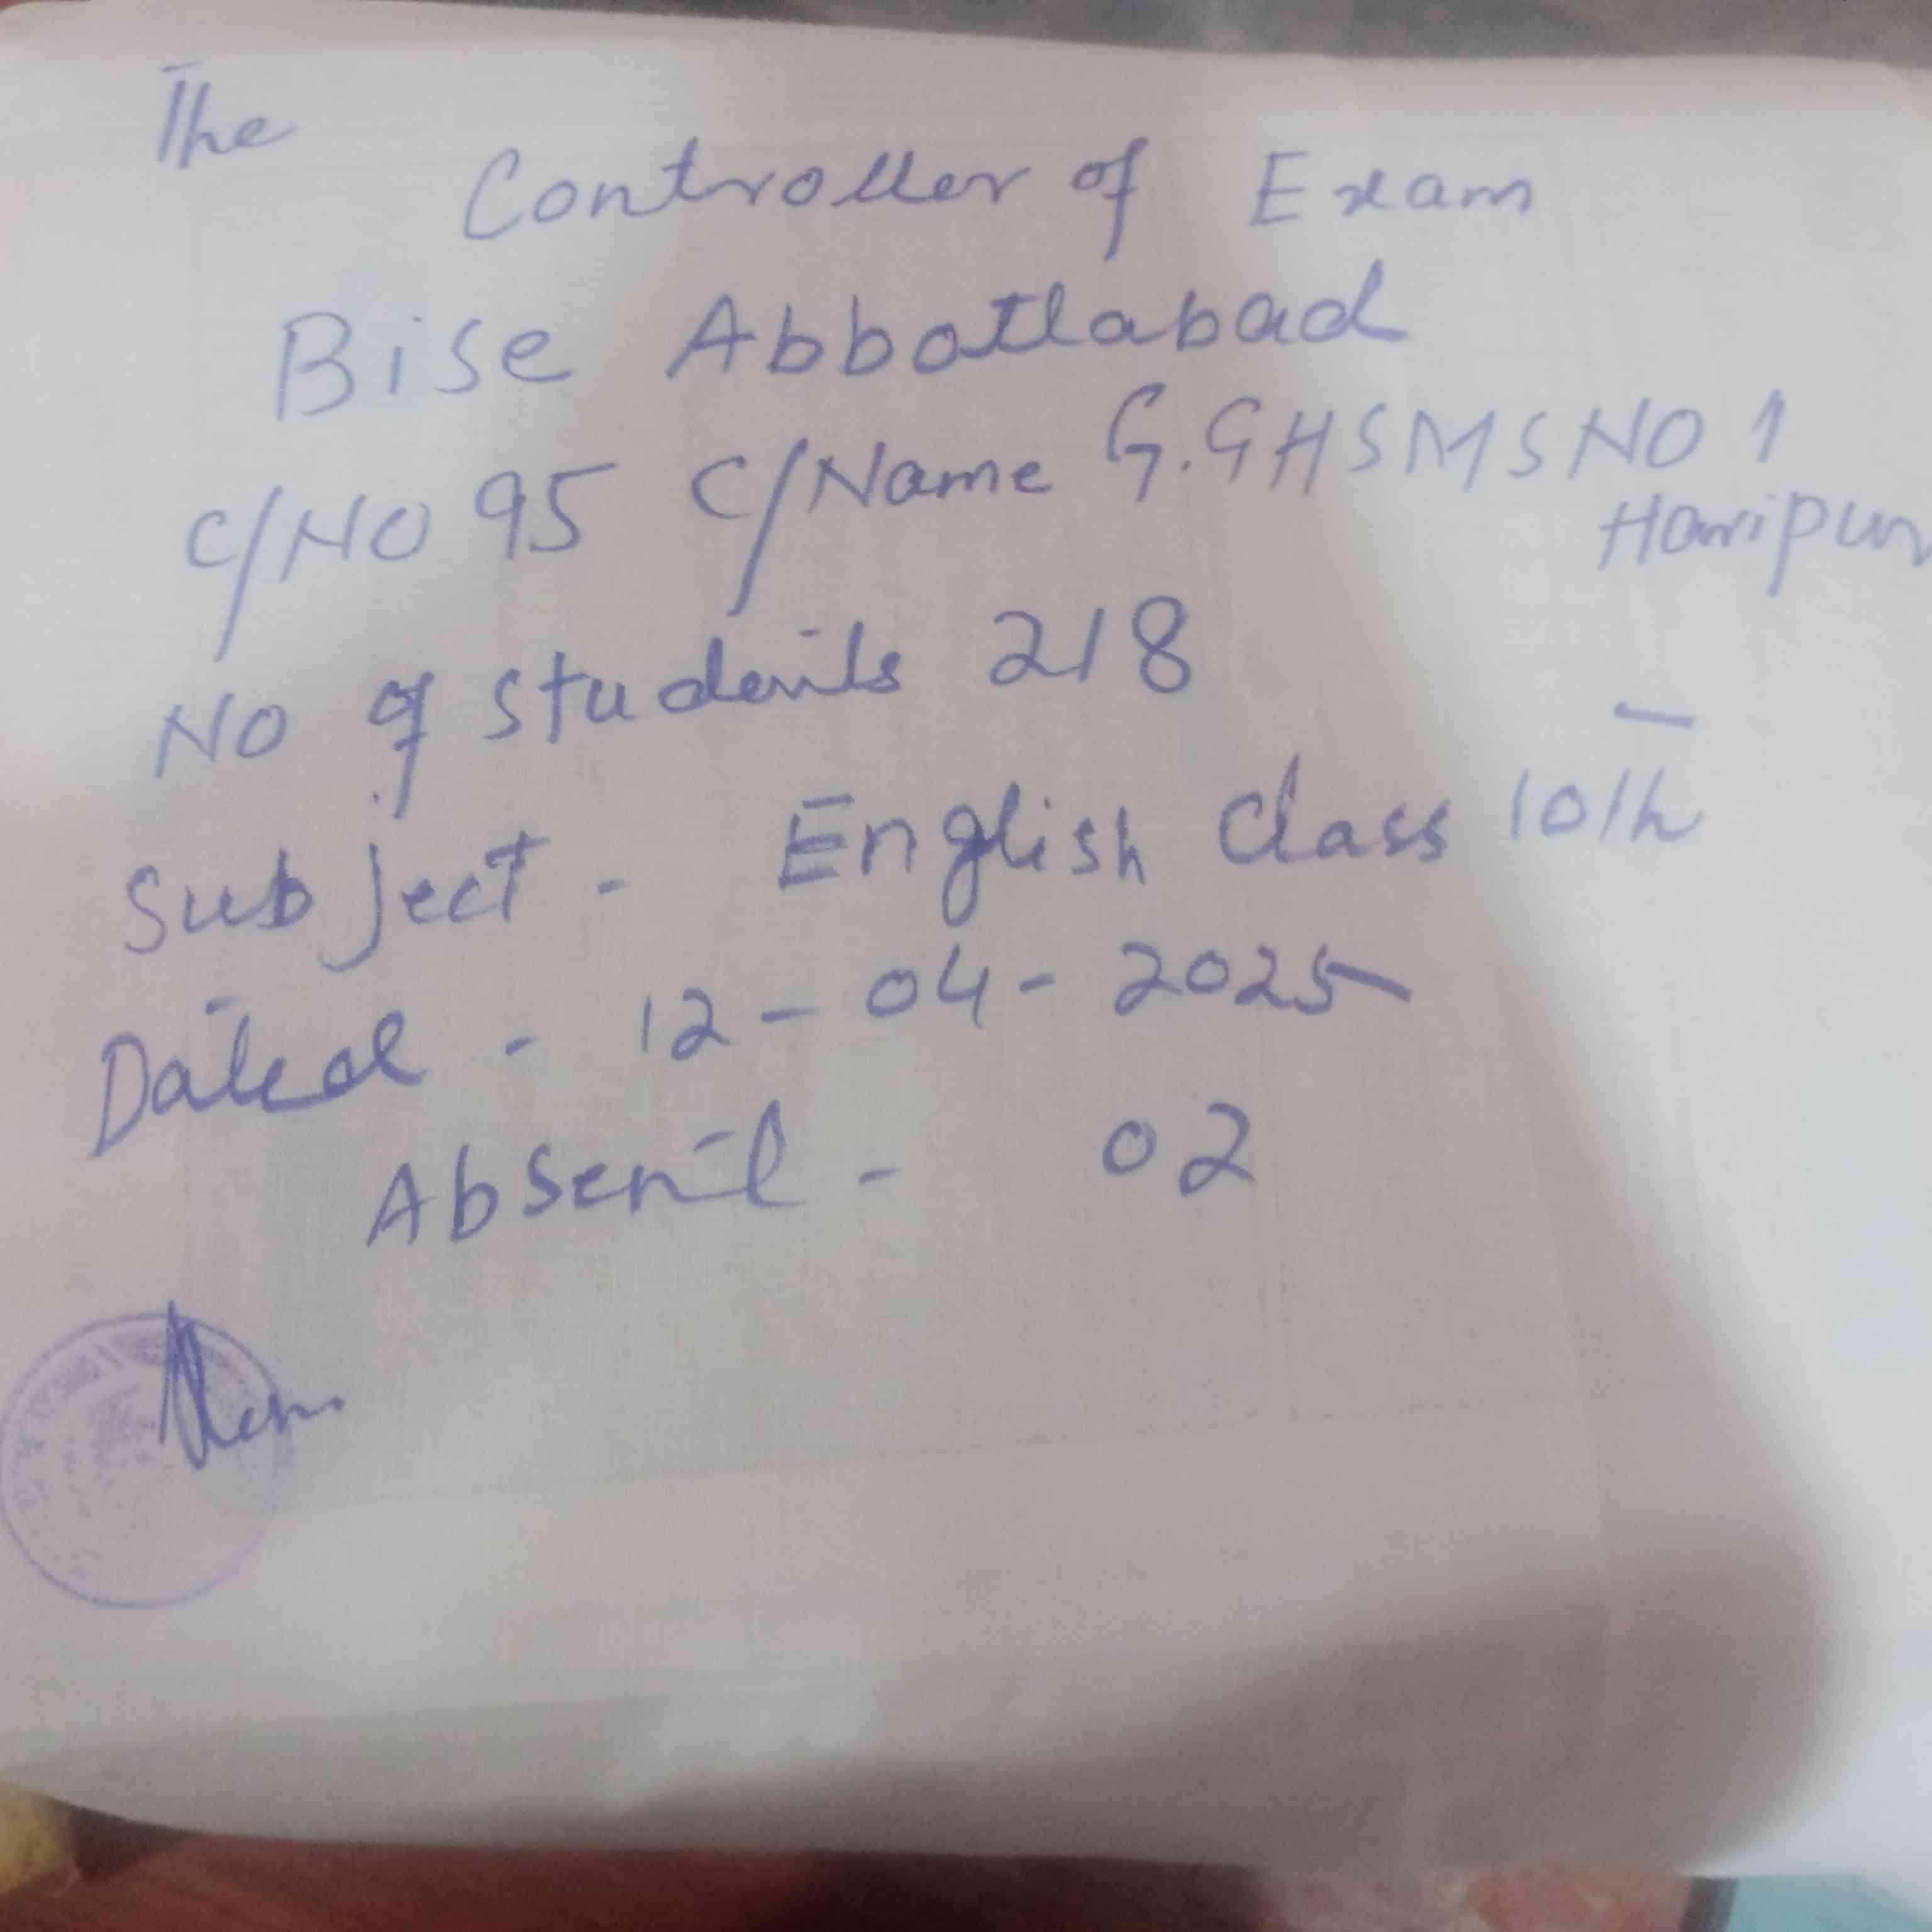 The
Controller of Exam
Bise Abbottabad
C/NO 95 C/Name G.GHSMS NO 1
Haripur
NO of students 218
Subject - English Class 10th
Dated - 12 - 04 - 2025
Absent - 02